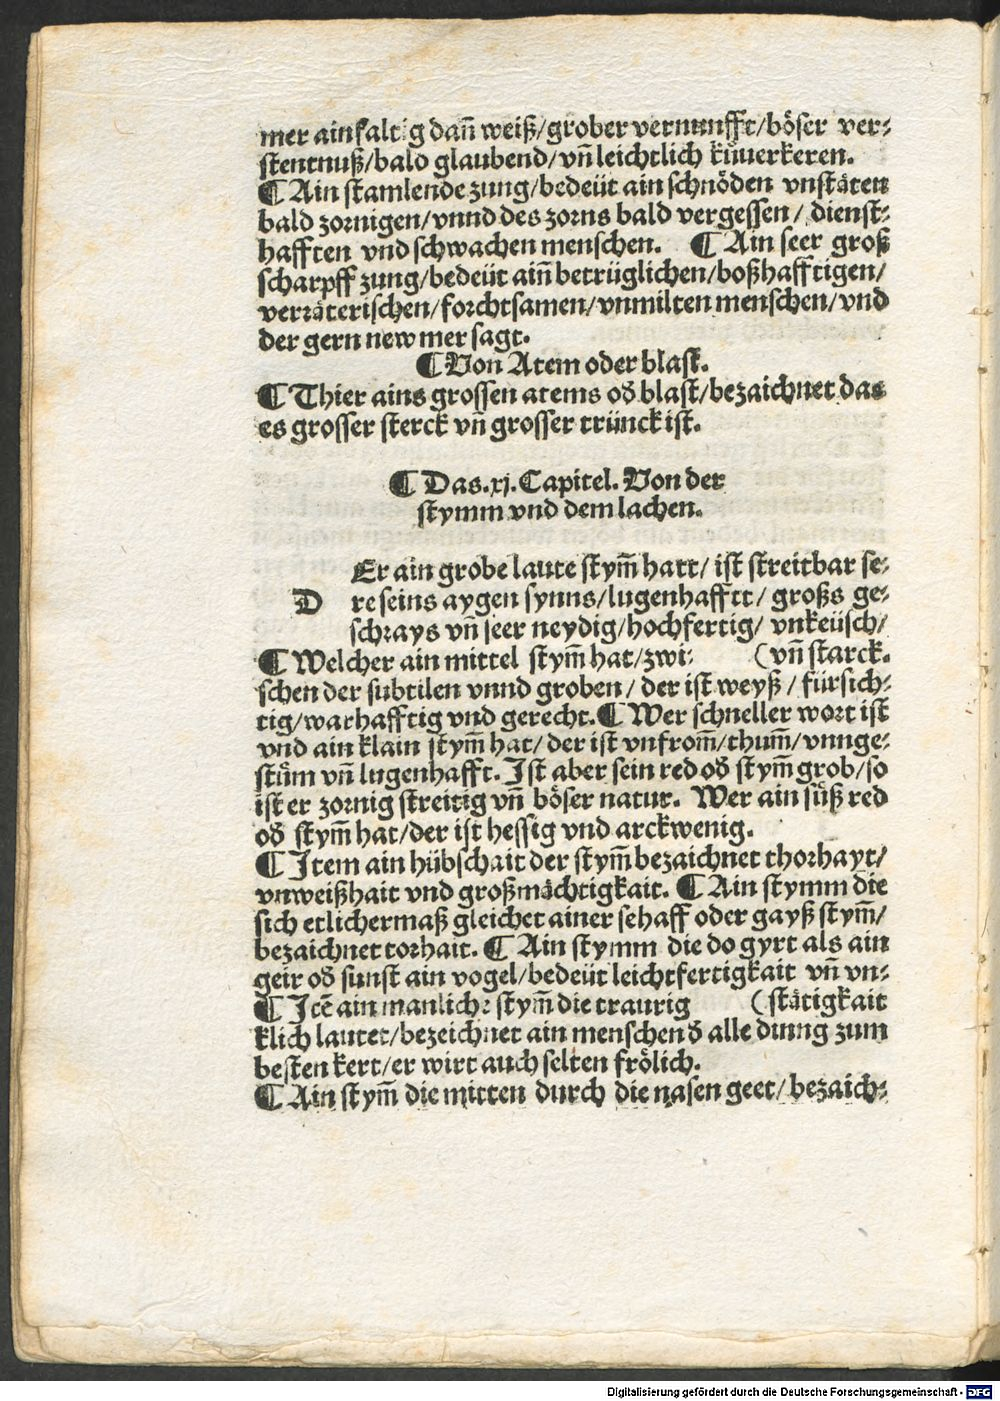 mer ainfaltig dañ weiß/grober vernunfft/böser ver⸗
stentnuß/bald glaubend/vñ leichtlich küuerkeren.
¶ Ain stamlende zung/bedeüt ain schnöden vnstäten
bald zornigen/vnnd des zorns bald vergessen/ dienst⸗
hafften vnd schwachen menschen. ¶ Ain seer groß
scharpff zung/bedeüt aiñ betrüglichen/boßhafftigen/
verräterischen/forchtsamen/vnmilten menschen/vnd
der gern new mer sagt.
¶ Von Atem oder blast.
¶ Thier ains grossen atems ođ blast/bezaichnet das
es grosser sterck vñ grosser trünck ist.
¶ Das .xj. Capitel. Von der
stymm vnd dem lachen.
Er ain grobe laute stym̃ hatt/ ist streitbar se⸗
D re seins aygen synns/lugenhafftt/ großs ge⸗
schrays vñ seer neydig/hochfertig/ vnkeüsch/
¶ Welcher ain mittel stym̃ hat/zwi⸗ (vñ starck.
schen der subtilen vnnd groben/ der ist weyß/ fürsich⸗
tig/warhafftig vnd gerecht. ¶ Wer schneller wort ist
vnd ain klain stym̃ hat/ der ist vnfrom̃/thum̃/vnnge⸗
stüm vñ lugenhafft. Ist aber sein red ođ stym̃ grob/so
ist er zornig streitig vñ böser natur. Wer ain süß red
ođ stym̃ hat/der ist hessig vnd arckwenig.
¶ Item ain hübschait der stym̃ bezaichnet thorhayt/
vnweißhait vnd großmächtigkait. ¶ Ain stymm die
sich etlichermaß gleichet ainer sehaff oder gayß stym̃/
bezaichnet torhait. ¶ Ain stymm die do gyrt als ain
geir ođ sunst ain vogel/bedeüt leichtfertigkait vñ vn⸗
¶ Itẽ ain manliche stym̃ die traurig (stätigkait
klich lautet/bezeichnet ain menschen đ alle dinng zum
besten kert/er wirt auch selten frölich.
¶ Ain stym̃ die mitten durch die nasen geet/bezaich⸗
Digitalisierung gefördert durch die Deutsche Forschungsgemeinschaft - DFG